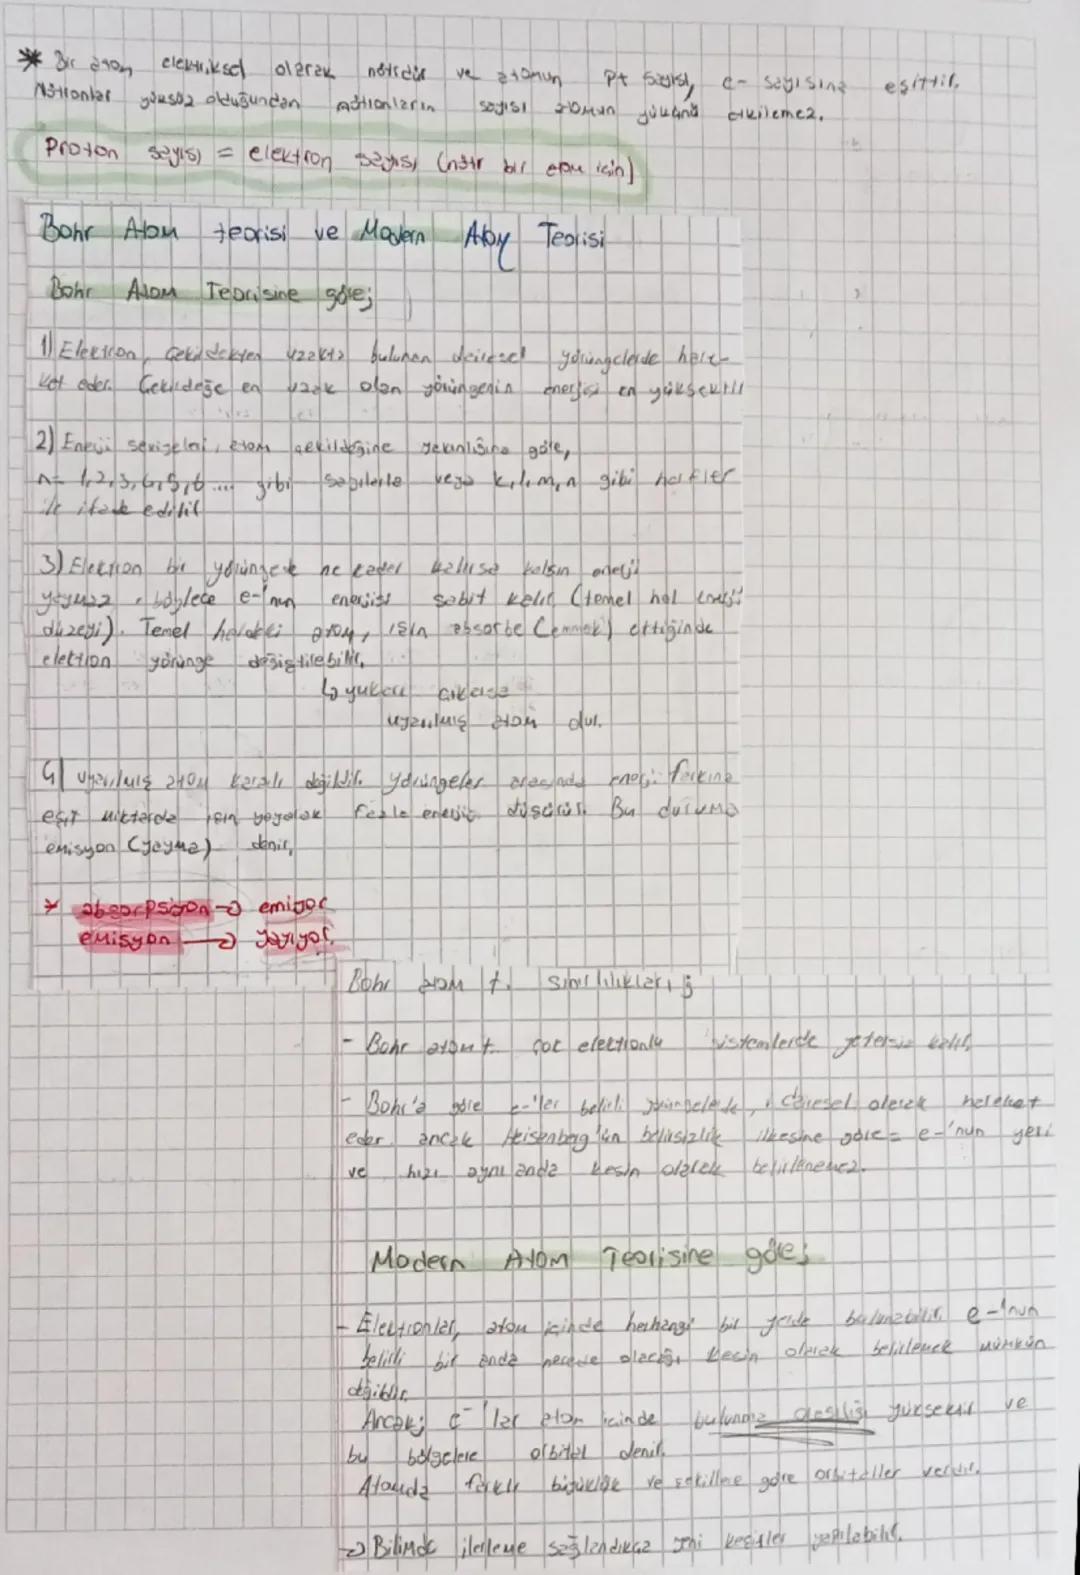 * Bir atom elektriksel olarak nötrdür ve atomun p+ sayısı, e- sayısına eşittir.
Nötronlar yüksüz olduğundan nötronların sayısı atomun yükünü etkilemez.
Proton sayısı = elektron sayısı (nötr bir atom için)
Bohr Atom teorisi ve Modern Atom Teorisi
Bohr Atom Teorisine göre;
1) Elektron, çekirdekten uzakta bulunan dairesel yörüngelerde hare-
ket eder. Çekirdeğe en uzak olan yörüngenin enerjisi en yüksektir
2) Enerji seviyeleri, atom çekirdeğine yakınlığına göre,
n= 1,2,3,4,5,6 .... gibi sayılarla veya k,l,m,n gibi harfler
ile ifade edilir
3) Elektron bir yörüngede ne kadar kalırsa kalsın enerji
yaymaz, böylece e-'nun enerjisi sabit kalır (temel hal enerji
düzeyi). Temel haldeki atom, ışın absorbe (emmek) ettiğinde
elektron yörünge değiştirebilir.
↳ yukarı çıkarsa
uyarılmış atom olur.
4) uyarılmış atom kararlı değildir. Yörüngeler arasında enerji farkına
eşit miktarda ışın yayarak fazla enerjiyi düşürür. Bu duruma
emisyon (yayma) denir.
* absorpsiyon → emiyor
emisyon → yayıyor.
Bohr atom t. sınırlılıkları;
- Bohr atom t. çok elektronlu sistemlerde yetersiz kalır.
- Bohr'a göre e-'ler belirli yörüngelerde, dairesel olarak hareket
eder. ancak Heisenberg'ün belirsizlik ilkesine göre = e-'nun yeri
ve hızı aynı anda kesin olarak belirlenemez.
Modern Atom Teorisine göre;
- Elektronlar, atom içinde herhangi bir yerde bulunabilir. e-'nun
belirli bir anda nerede olacağı kesin olarak belirlemek mümkün
değildir.
Ancak; e-'lar atom içinde bulunma olasılığı yüksektir ve
bu bölgelere orbital denir.
Atomda farklı büyüklük ve şekillere göre orbitaller vardır.
→ Bilimde ilerleme sağlandıkça yeni keşifler yapılabilir.